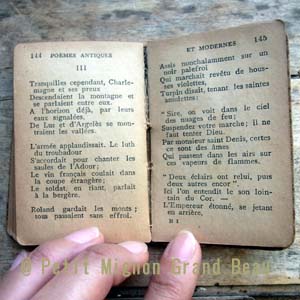 144 POÈMES ANTIQUES
III
Tranquilles cependant, Charle-
magne et ses preux
Descendaient la montagne et
se parlaient entre eux.
A l'horizon déjà, par leurs
eaux signalées,
De Luz et d'Argelès se mon-
traient les vallées.
L'armée applaudissait. Le luth
du troubadour
S'accordait pour chanter les
saules de l'Adour;
Le vin français coulait dans
la coupe étrangère;
Le soldat, en riant, parlait
à la bergère.
Roland gardait les monts;
tous passaient sans effroi.
ET MODERNES 145
Assis nonchalamment sur un
noir palefroi
Qui marchait revêtu de hous-
ses violettes,
Turpin disait, tenant les saintes
amulettes:
" Sire, on voit dans le ciel
des nuages de feu;
Suspendez votre marche; il ne
faut tenter Dieu.
Par monsieur saint Denis, certes
ce sont des âmes
Qui passent dans les airs sur
ces vapeurs de flammes.
" Deux éclairs ont relui, puis
deux autres encor ".
Ici l'on entendit le son loin-
tain du Cor. —
L'Empereur étonné, se jetant
en arrière,
@ Petit Mignon Grand Beau